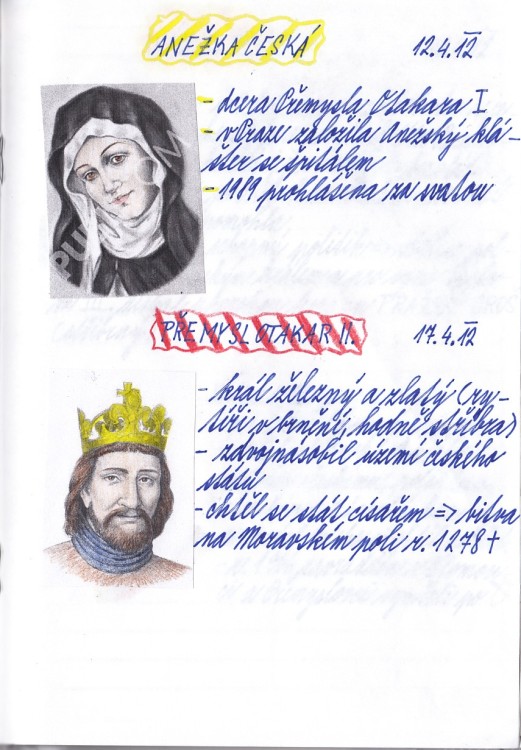 ANEŽKA ČESKÁ 12.4.12
- dcera Přemysla Otakara I
- v Praze založila Anežský klá-
šter se špitálem
- 1989 prohlášena za svatou
PŘEMYSL OTAKAR II. 17.4.12
- král železný a zlatý (ry-
tíři v brnění, hodně stříbra)
- zdvojnásobil území českého
státu
- chtěl se stát císařem => bitva
na Moravském poli r. 1278 +